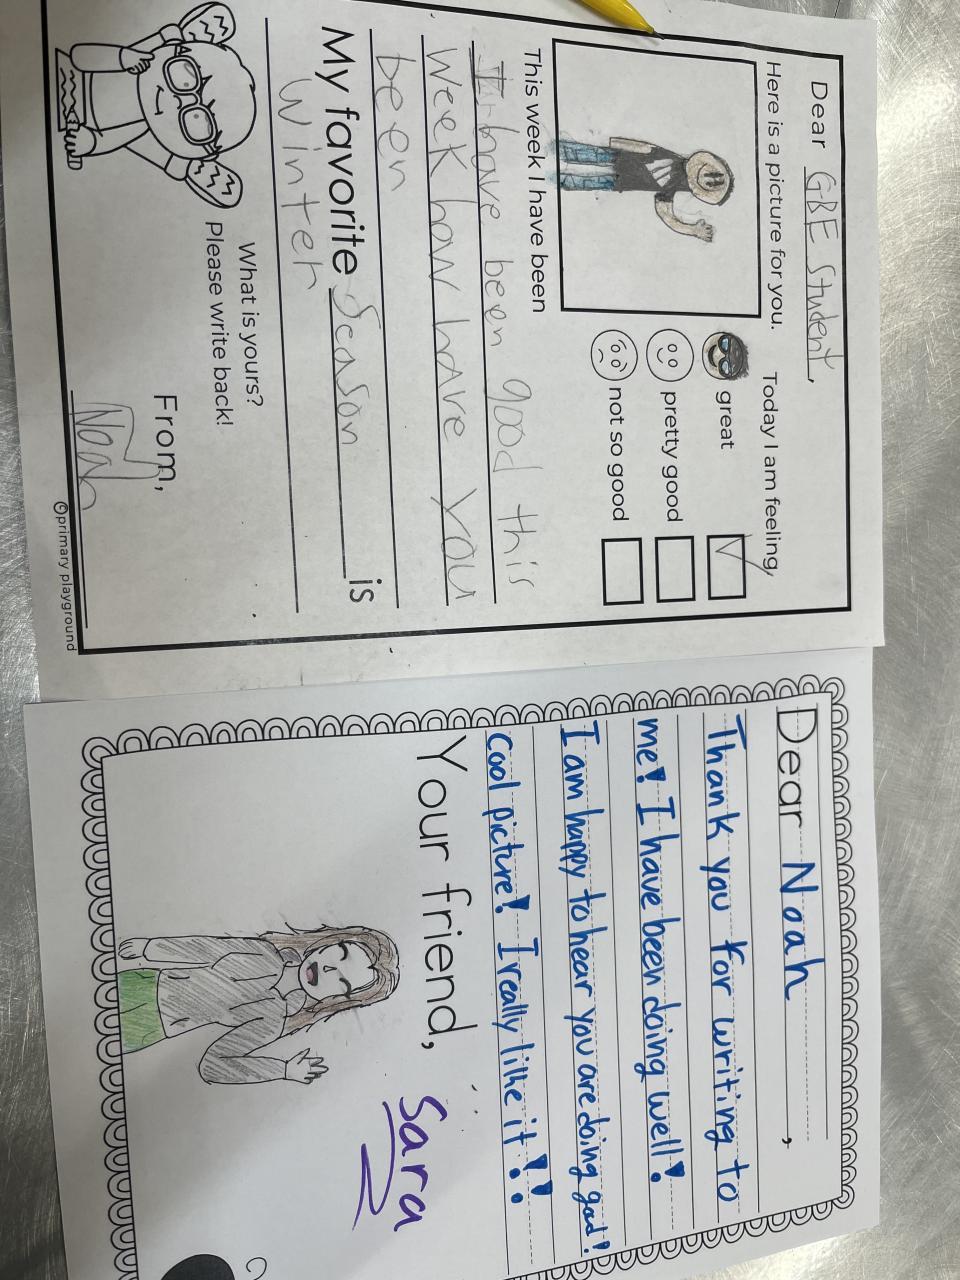 Dear GBE Student,
Here is a picture for you.
Today I am feeling,
great
pretty good
not so good
This week I have been
I have been good this
week how have you
been
My favorite Season is
winter
What is yours?
Please write back!
From,
Noah
©primary playground
Dear Noah,
Thank you for writing to
me! I have been doing well!
I am happy to hear you are doing good!
Cool picture! I really like it!!
Your friend,
Sara